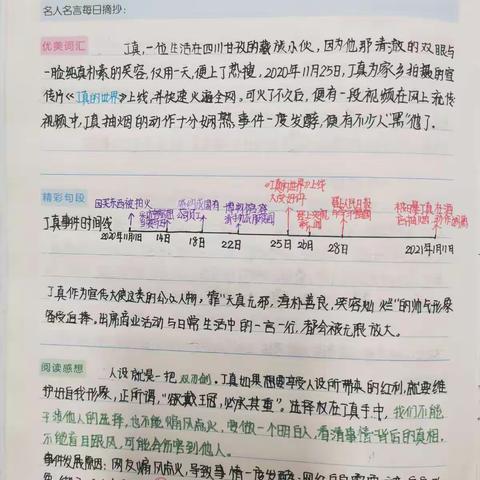 名人名言每日摘抄:
优美词汇
丁真,一位生活在四川甘孜的藏族小伙,因为他那清澈的双眼与
一脸纯真朴素的笑容,仅用一天,便上了热搜,2020年11月25日,丁真为家乡拍摄的宣
传片《丁真的世界》上线,并快速火遍全网。可火了不久后,便有一段视频在网上流传
视频中,丁真抽烟的动作十分娴熟,事件一度发酵,便有不少人"黑"他了。
精彩句段
丁真事件时间线
《丁真的世界》上线
大受好评
2020年11月11日 14日 18日 22日 25日 26日 28日 2021年1月11日
丁真作为宣传大使这类的公众人物,靠"天真无邪,淳朴善良,笑容灿烂"的帅气形象
备受追捧。出席商业活动与日常生活中的一言一行,都会被无限放大。
阅读感想
人设就是一把双刃剑。丁真如果想要享受人设所带来的红利,就要维
护好自我形象,正所谓,"欲戴王冠,必承其重"。选择权在丁真手中,我们不能
干涉他人的选择,也不能煽风点火,要做一个明白人,看清事情背后的真相,
不能盲目跟风,可能会伤害到他人。
事件发展原因:网友煽风点火,导致事情一度发酵;